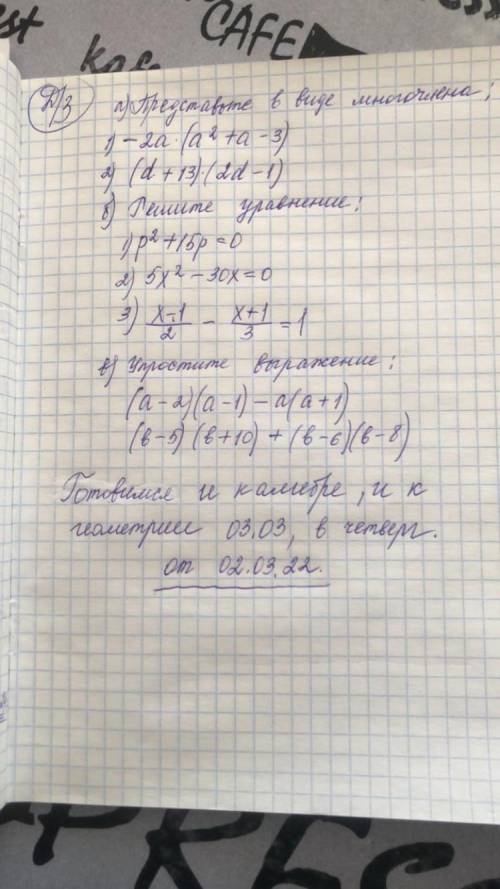 CAFE
Д/з
а) Представьте в виде многочлена:
1) -2a·(a²+a-3)
2) (d+13)·(2d-1)
б) Решите уравнение:
1) p²+15p=0
2) 5x²-30x=0
3) x-1/2 - x+1/3 = 1
в) Упростите выражение:
(a-2)(a-1)-a(a+1)
(b-5)(b+10)+(b-6)(b-8)
Готовимся и к алгебре, и к
геометрии 03.03, в четверг.
от 02.03.22.